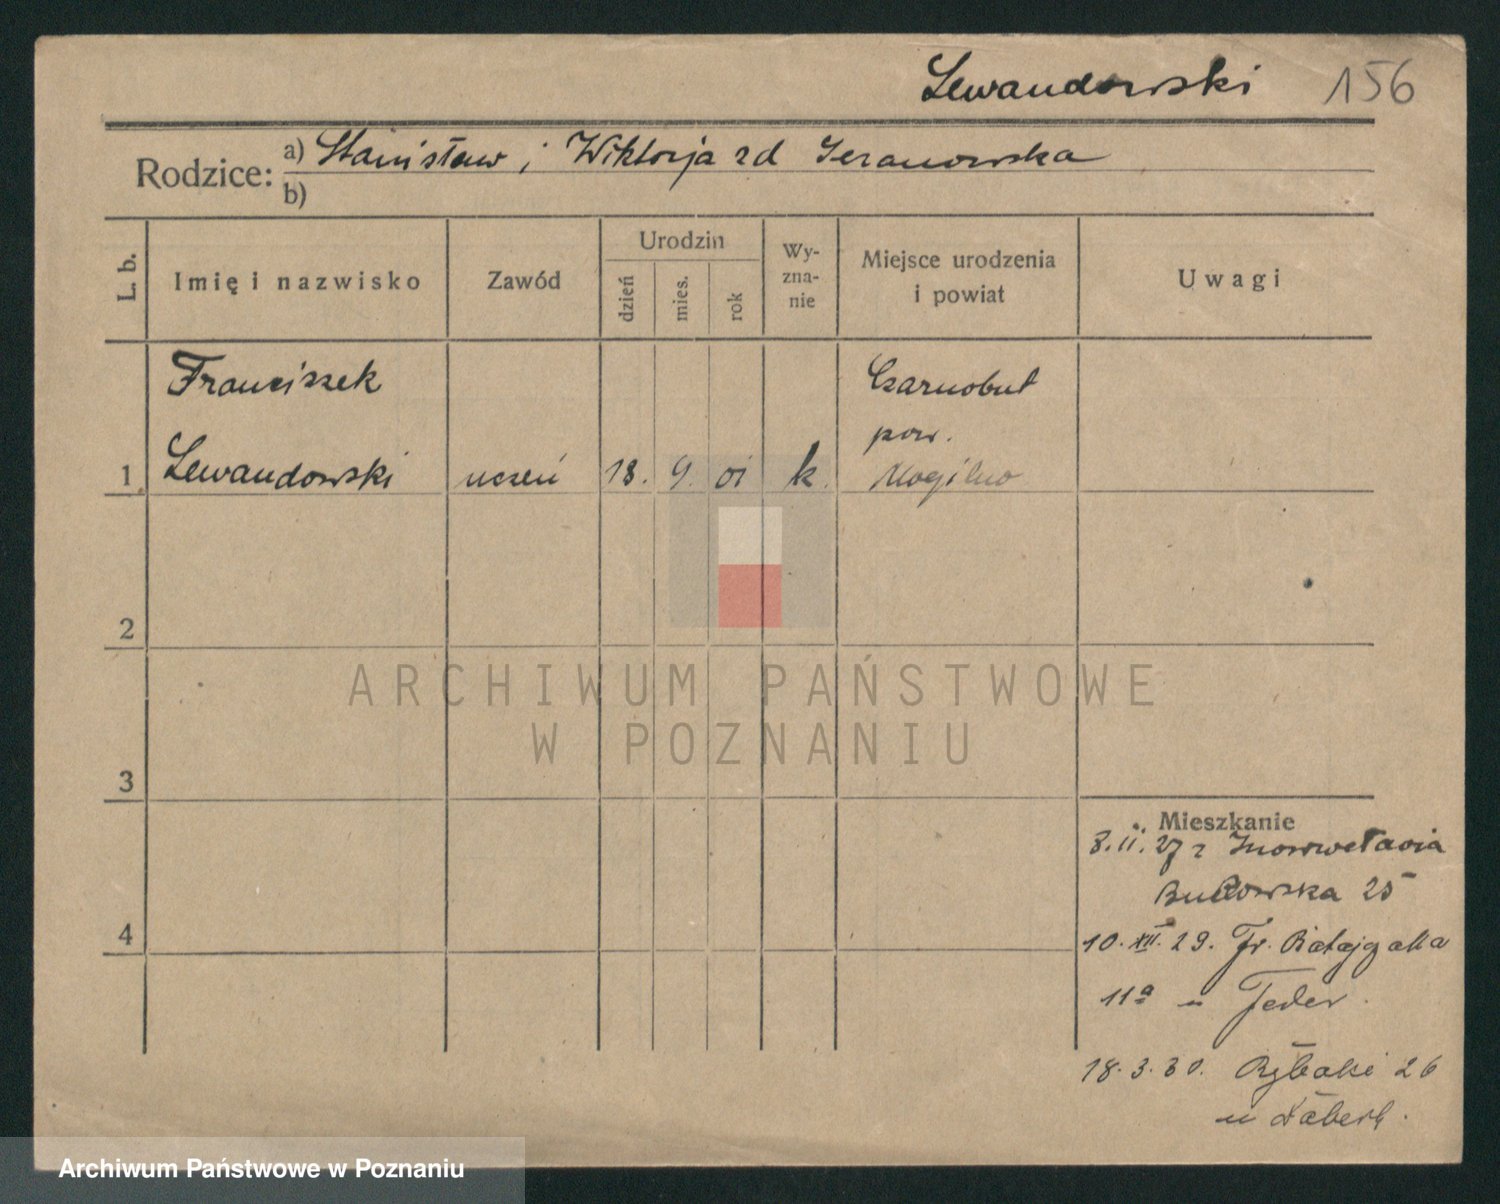 Lewandowski 156
Rodzice: a) Stanisław i Wiktorja zd Jeranowska
b)
L. b.
Imię i nazwisko
Zawód
Urodzin
dzień
mies.
rok
Wy-
zna-
nie
Miejsce urodzenia
i powiat
Uwagi
Franciszek
Czarnobut
pow.
1 Lewandowski uczeń 18. 9. 01 k. Mogilno
2
ARCHIWUM PAŃSTWOWE
W POZNANIU
3
Mieszkanie
8.II.27 z Inowrocławia
Bukowska 25
4
10.XII.29. Fr. Ratajczaka
11a u Feder.
18.3.30. Rybaki 26
u
Archiwum Państwowe w Poznaniu